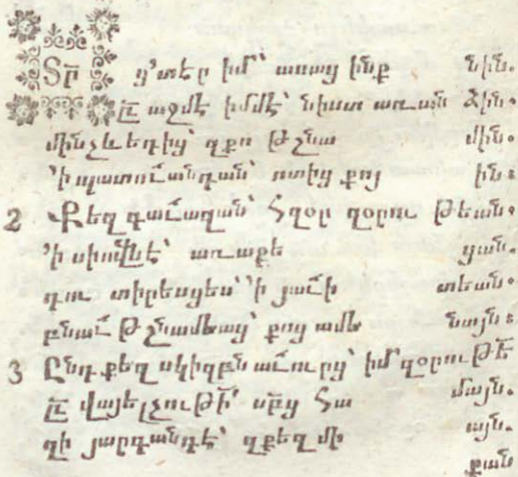 Տր̅ ց՚տեր իմ՝ ասաց ինք նին.
ը̅ աջմէ իմմէ՝ նիստ առ ան ձին.
մինչև եդից՝ զքո թշնա մին.
՚ի պատուանդան՝ ոտից քոյ ին։
2 Քեզ գաւազան՝ հզօր զօրու թեան.
՚ի սիովնէ՝ առաքե ցան.
դու տիրեսցես՝ ՚ի յաւի տեան.
բնաւ թշնամեաց՝ քոց ամե նայն։
3 Ընդ քեզ սկիզբն աւուրց՝ իմ զօրու թե̅
ը̅ վայելչու թի̅՝ սբ̅ց հա մայն.
զի յարգանդէ՝ զքեզ մի այն.
քան